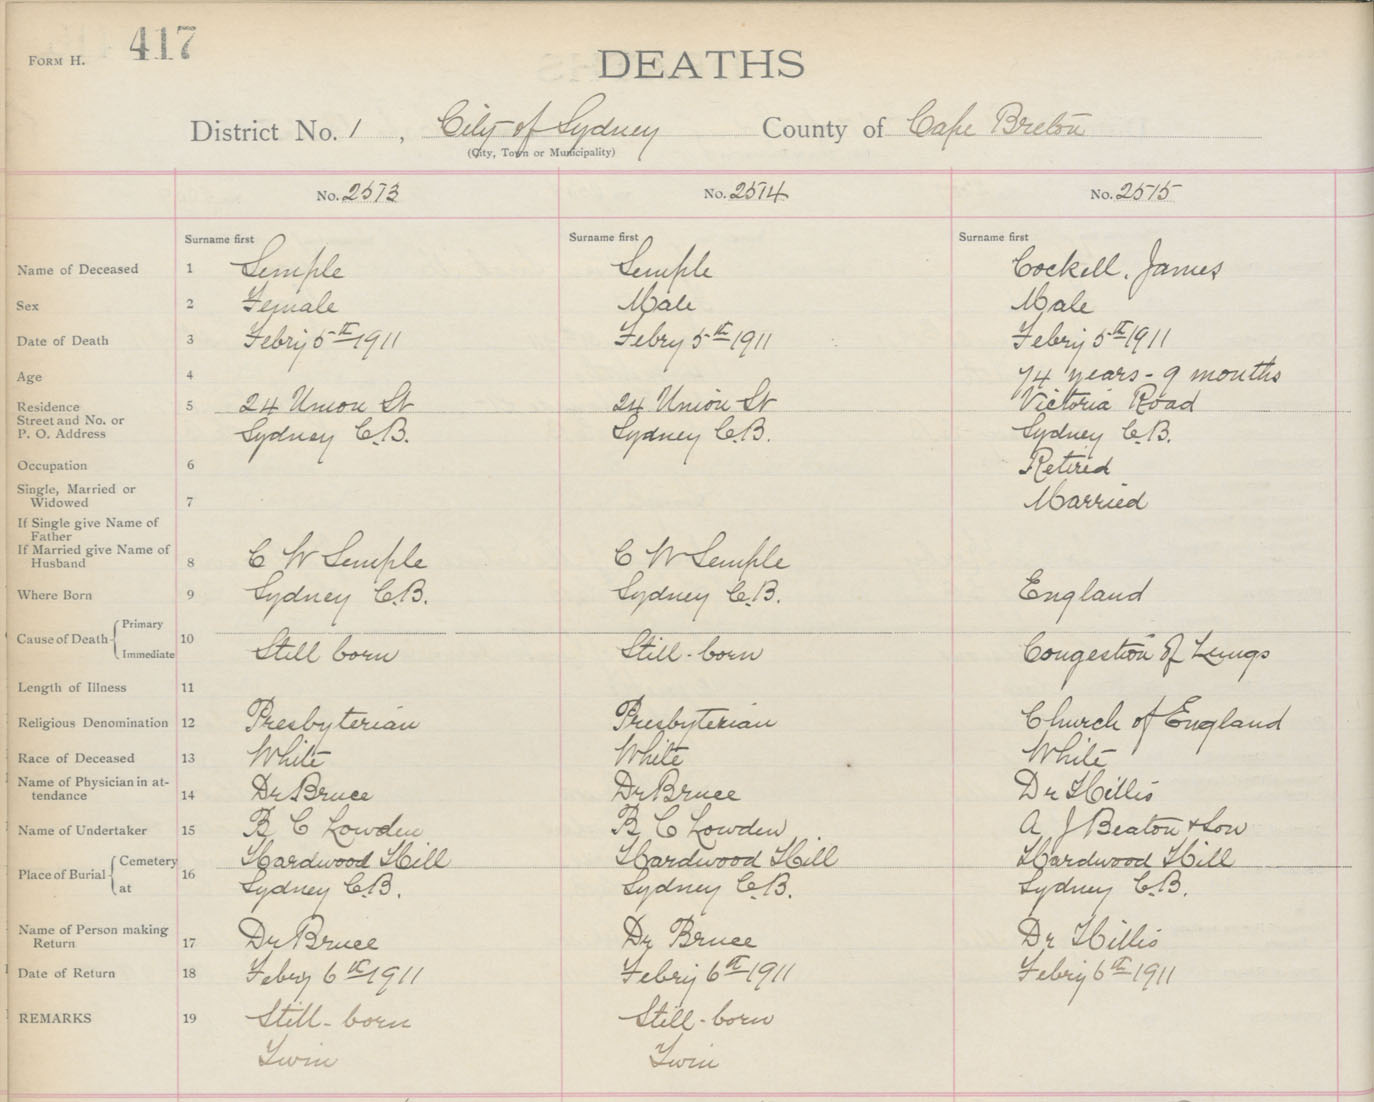 Form H. 417
DEATHS
District No. 1, City of Sydney County of Cape Breton
(City, Town or Municipality)
No. 2573 No. 2574 No. 2575
Surname first Surname first Surname first
Name of Deceased 1 Semple Semple Cockell, James
Sex 2 Female Male Male
Date of Death 3 Febry 5th 1911 Febry 5th 1911 Febry 5th 1911
Age 4 74 years - 9 months
Residence 5 24 Union St 24 Union St Victoria Road
Street and No. or
P. O. Address Sydney C.B. Sydney C.B. Sydney C.B.
Occupation 6 Retired
Single, Married or
Widowed 7 Married
If Single give Name of
Father
If Married give Name of
Husband 8 C W Semple C W Semple
Where Born 9 Sydney C.B. Sydney C.B. England
Primary
Cause of Death 10
Immediate Still born Still-born Congestion of Lungs
Length of Illness 11
Religious Denomination 12 Presbyterian Presbyterian Church of England
Race of Deceased 13 White White White
Name of Physician in at-
tendance 14 Dr Bruce Dr Bruce Dr Hillis
Name of Undertaker 15 B C Lowden B C Lowden A J Beaton & Son
Cemetery Hardwood Hill Hardwood Hill Hardwood Hill
Place of Burial 16
at Sydney C.B. Sydney C.B. Sydney C.B.
Name of Person making
Return 17 Dr Bruce Dr Bruce Dr Hillis
Date of Return 18 Febry 6th 1911 Febry 6th 1911 Febry 6th 1911
REMARKS 19 Still-born Still-born
Twin Twin